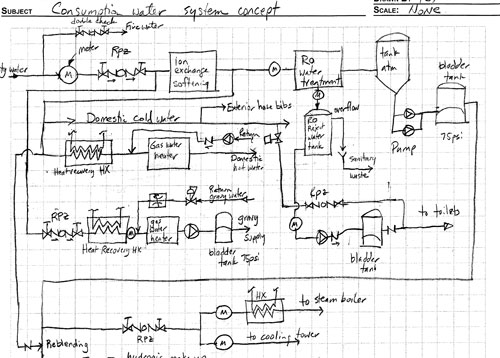 SUBJECT Consumption water system concept
SCALE: None
double check
Fire water
meter
RPZ
ty water
M
Ion
exchange
softening
M
RO
water
treatment
tank
atm
bladder
tank
M
overflow
RO
Reject water
tank
Pump
75psi
Exterior hose bibs
Domestic cold water
Return
Gas water
heater
Domestic
hot water
Heat recovery HX
Sanitary
waste
Return
RPZ
RPZ
M
gas
water
heater
supply
Heat Recovery HX
bladder
tank 75psi
M
bladder
tank
to toilets
HX
M
to steam boiler
M
to cooling tower
RPZ
Reblending